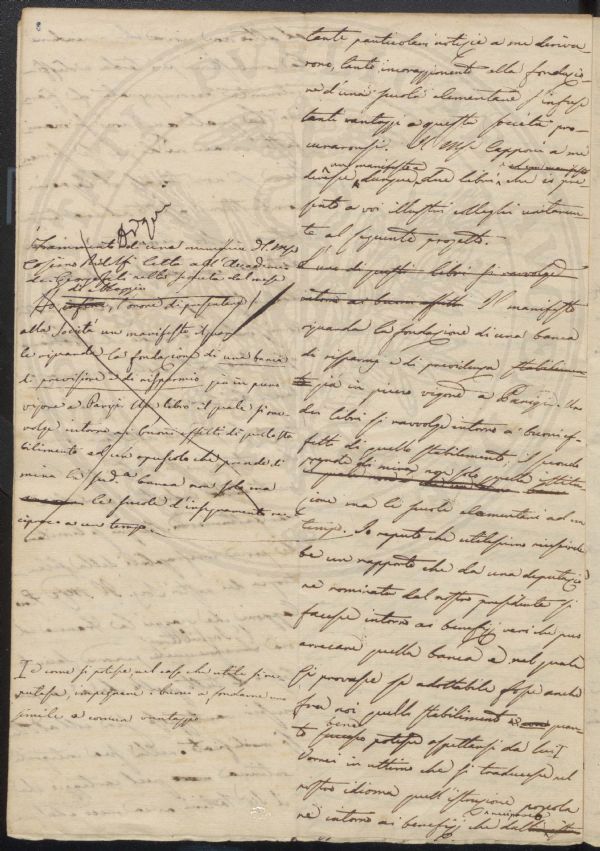 8
tante particolari notizie a me deriva-
rono, tante incoraggimento alla fondazio-
ne d'una scuola elementare
tanti vantaggi a questa società pro-
curaronsi. Il M.se Capponi a me
un manifesto e
diresse dunque due libri che io pre-
sento a voi illustri Colleghi
te al seguente progetto.
L'uno di questi libri si ravvolge
intorno ai buoni effetti Il manifesto
riguarda la fondazione di una banca
di risparmi e di previdenza stabilimen-
to già in pieno vigore a Parigi. Uno
dei libri si ravvolge intorno ai buoni ef-
fetti di quello stabilimento, il secondo
prende di mira non solo quella istitu-
zione ma le scuole elementari ad un
tempo. Io reputo che utilissimo riuscireb-
be un rapporto che da una deputazio-
ne nominata dal nostro presidente si
facesse intorno ai benefizj veri che può
arrecare quella banca e nel quale
si provasse se adottabile fosse anche
fra noi quello stabilimento e quan-
bene
to successo potesse aspettarsi da lui
Vorrei in ultimo che si traducesse nel
nostro idioma quell'istruzione
ne intorno ai benefizj che dalle
Adqui
di una memoria del M.se
Cosimo Ridolfi letta all'Accademia
dei Georgofili nella seduta del mese
di Maggio
Ho l'onore di presentare
alla Società un manifesto
le riguarda la fondazione di una banca
di previsione e di risparmio già in pieno
vigore a Parigi Un libro il quale si rav-
volge intorno ai buoni effetti di questo sta-
bilimento ed un opuscolo che prende di
mira la sud.a banca non solo ma
le scuole d'insegnamento re-
ciproco a un tempo.
I e come si potesse nel caso che utile si re-
putasse, impegnare i buoni a fondarne una
simile a comun vantaggio